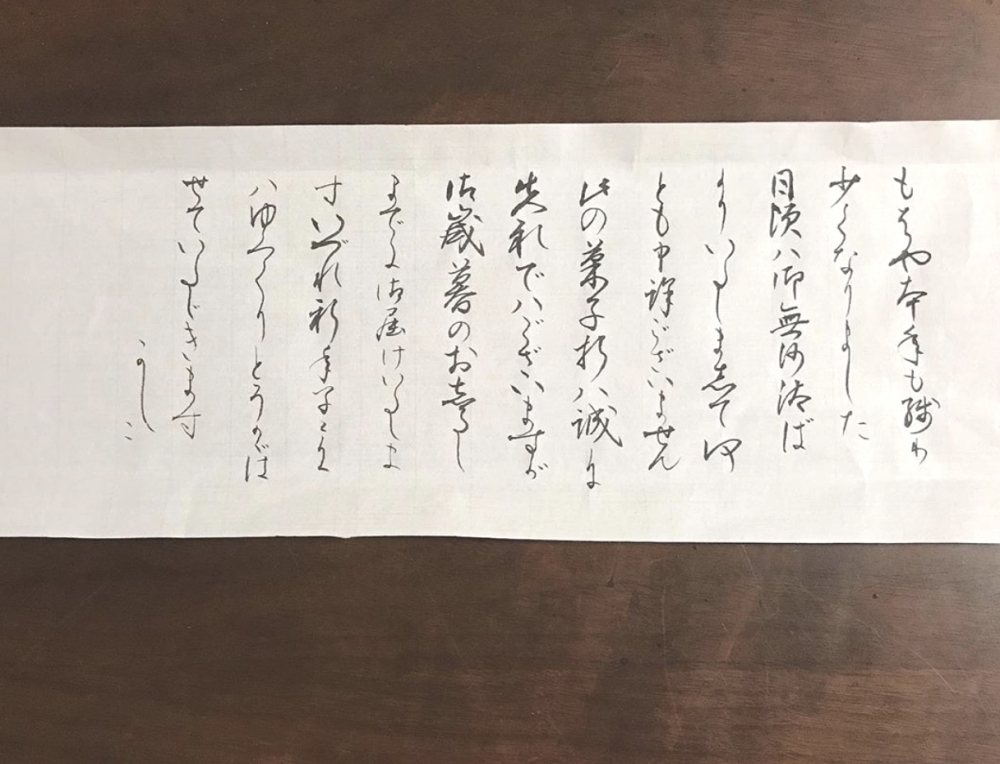 もはや本年も残り
少くなりました
日頃ハ御無沙汰ば
かりいたしまして何
とも申訳ございません
此の菓子折ハ誠に
失礼でハございますが
御歳暮のおしるし
までに御届けいたしま
すいづれ新年早々に
ハゆつくりとうかゞは
せていたゞきます
かしこ